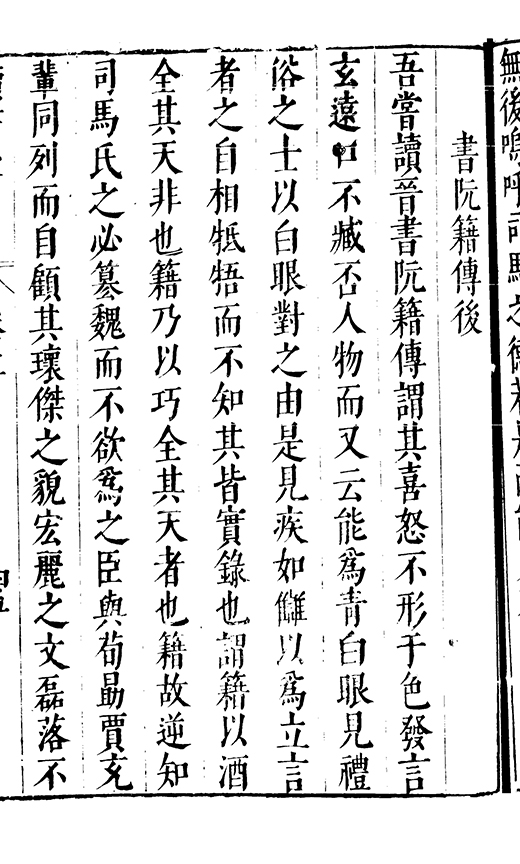 無後嗚呼司馬之德
書阮籍傳後
吾嘗讀晉書阮籍傳謂其喜怒不形于色發言
玄遠口不臧否人物而又云能爲青白眼見禮
俗之士以白眼對之由是見疾如讎以爲立言
者之自相牴牾而不知其皆實錄也謂籍以酒
全其天非也籍乃以巧全其天者也籍故逆知
司馬氏之必簒魏而不欲爲之臣與荀勗賈充
輩同列而自顧其瓌傑之貌宏麗之文磊落不